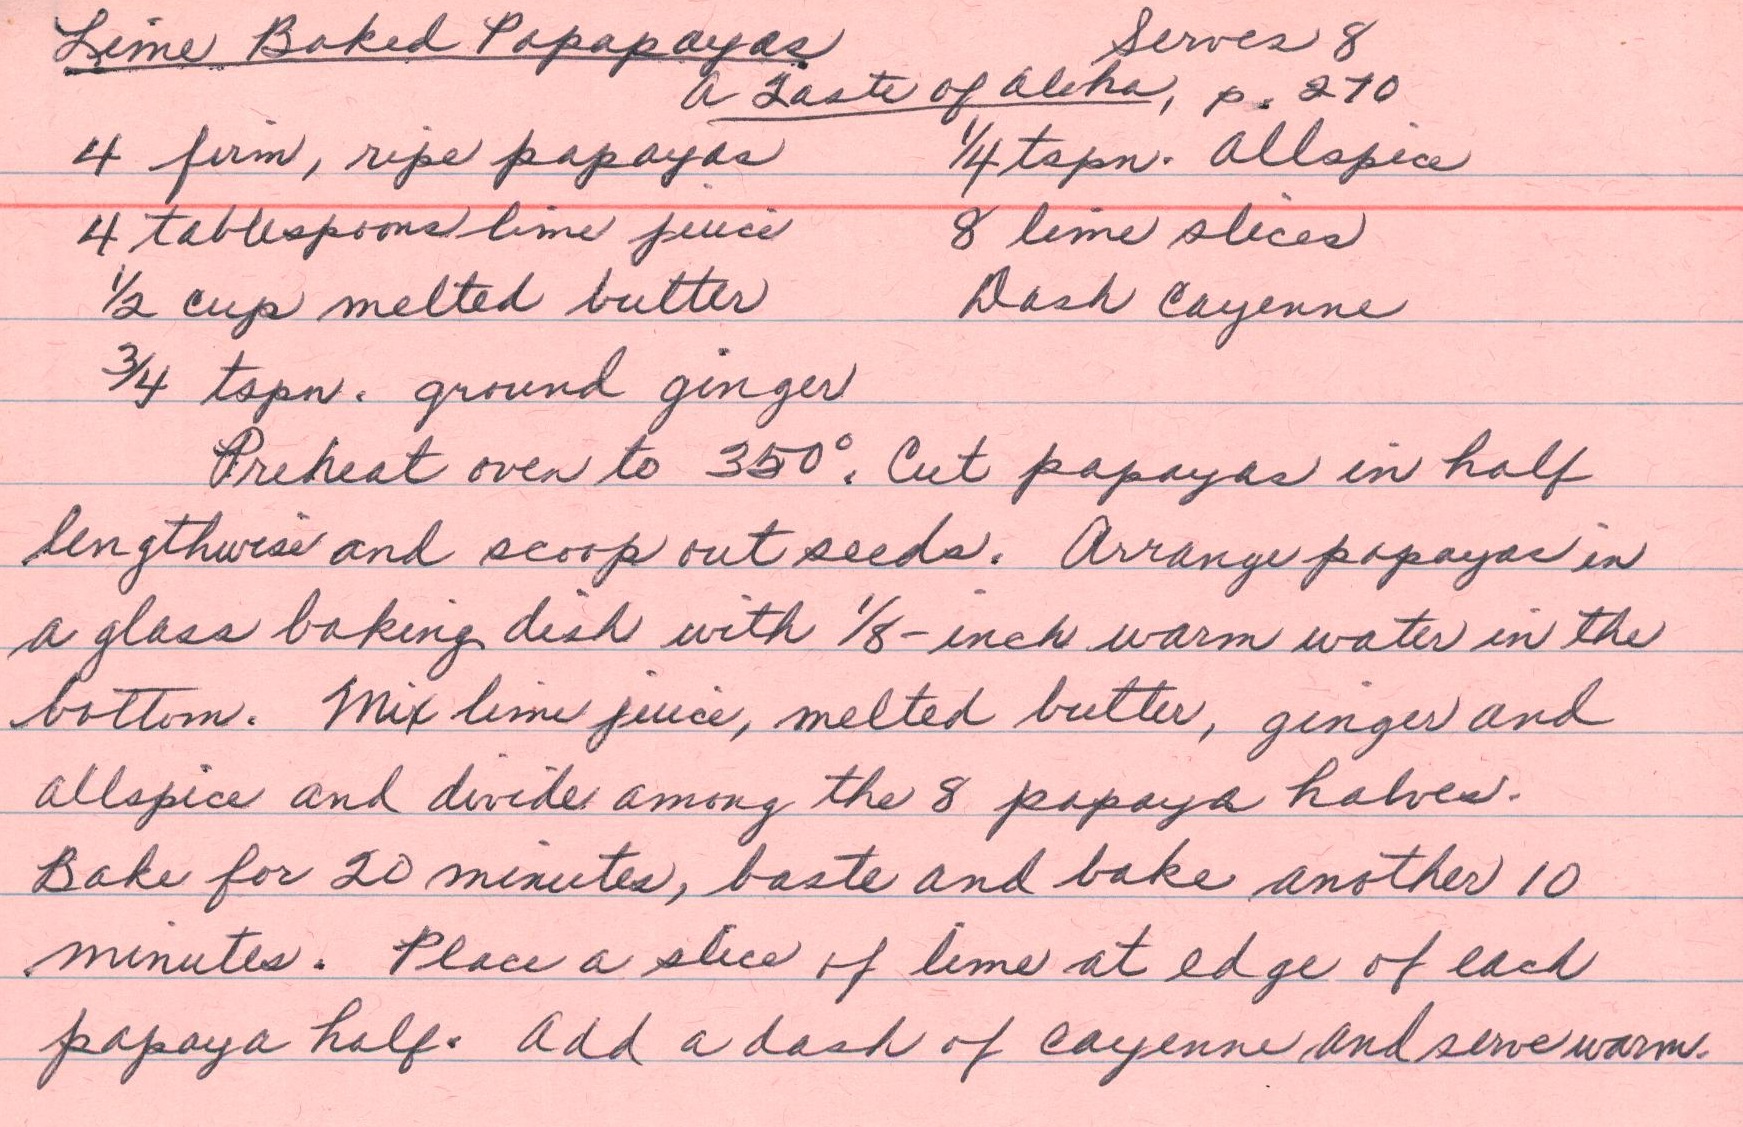 Lime Baked Papapayas Serves 8
A Taste of Aloha, p. 270
4 firm, ripe papayas 1/4 tspn. Allspice
4 tablespoons lime juice 8 lime slices
1/2 cup melted butter Dash Cayenne
3/4 tspn. ground ginger
Preheat oven to 350°. Cut papayas in half
lengthwise and scoop out seeds. Arrange papayas in
a glass baking dish with 1/8-inch warm water in the
bottom. Mix lime juice, melted butter, ginger and
allspice and divide among the 8 papaya halves.
Bake for 20 minutes, baste and bake another 10
minutes. Place a slice of lime at edge of each
papaya half. Add a dash of cayenne and serve warm.